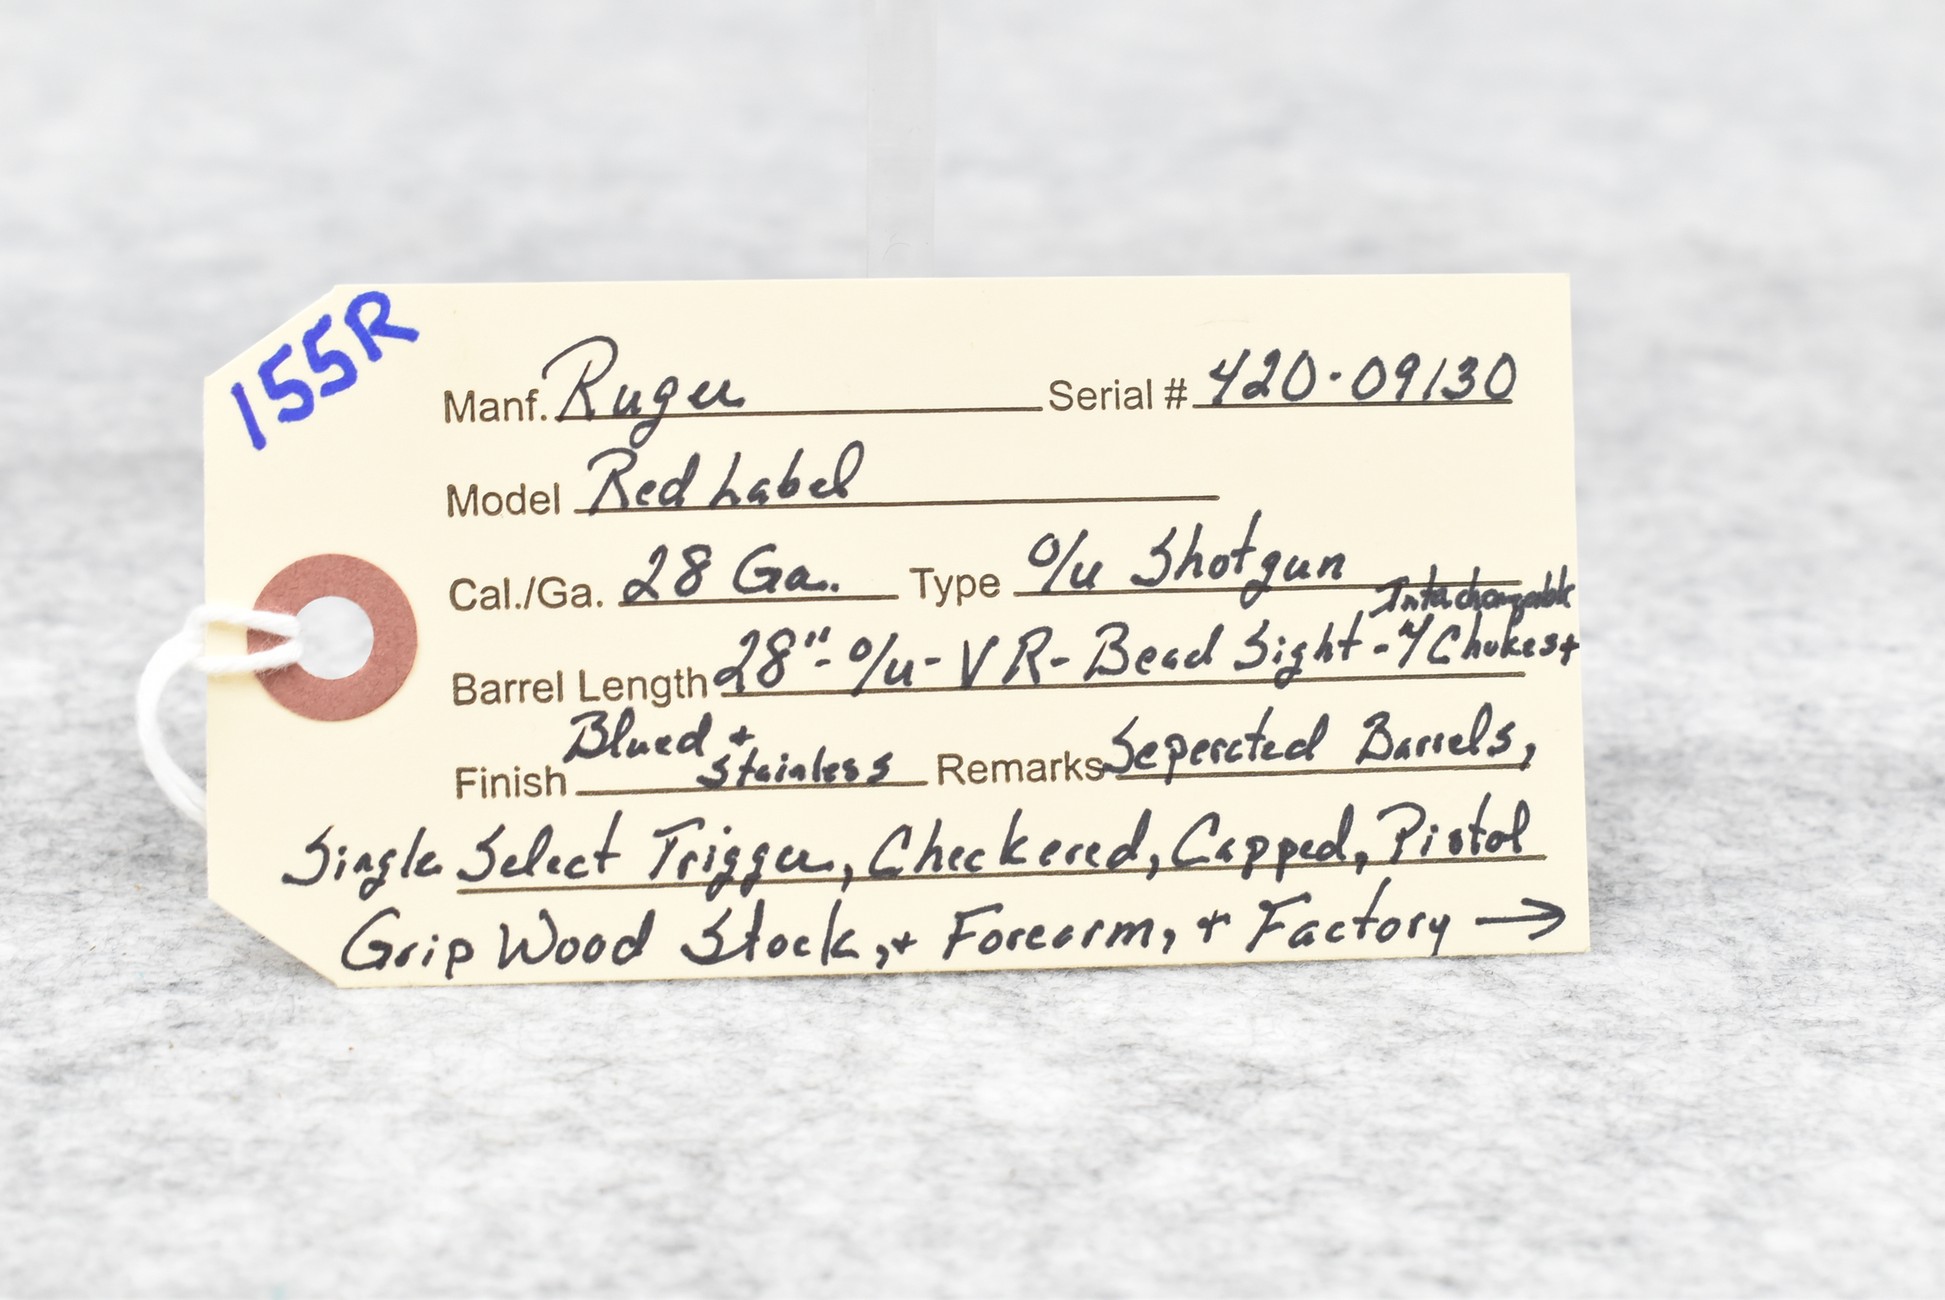 155R
Manf. Ruger Serial # 420-09130
Model Red Label
Cal./Ga. 28 Ga. Type O/u Shotgun
Interchangeable
Barrel Length 28"-O/u-VR-Bead Sight-4 Chokes+
Blued +
Finish Stainless Remarks Seperated Barrels,
Single Select Trigger, Checkered, Capped, Pistol
Grip Wood Stock,+ Forearm, + Factory →